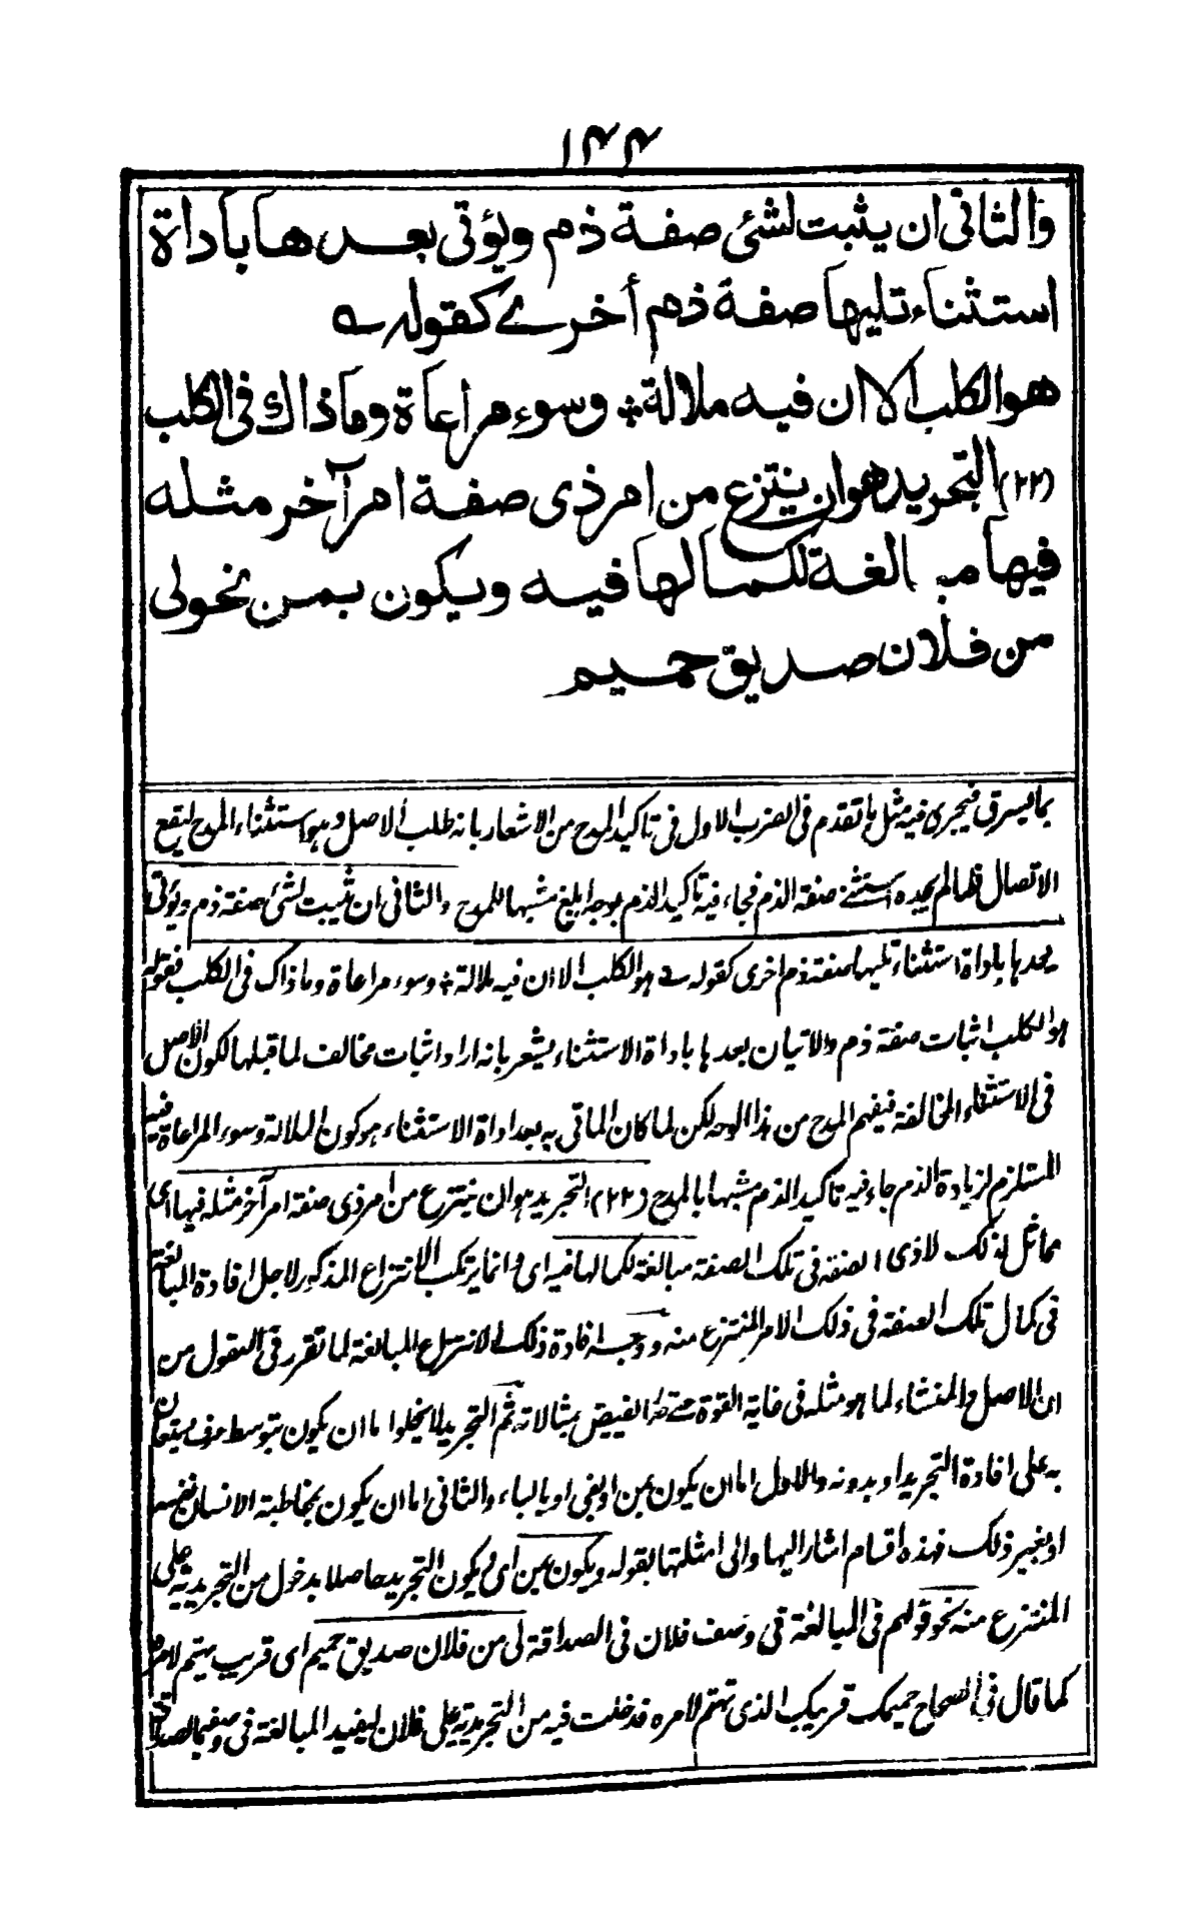 ١٤٤
والثانى ان يثبت لشئ صفة ذم ويؤتى بعدها باداة
استثناء تليها صفة ذم أخرے كقوله ے
هو الكلب الا ان فيه ملالة ؞ وسوء مراعاة وما ذاك فى الكلب
(٢٢) التجريد هو ان ينتزع من امر ذى صفة امر آخر مثله
فيها مبالغة لكمالها فيه ويكون بمن نحو لى
من فلان صديق حميم
بما ليسرق فيجرى فيه مثل ما تقدم فى الضرب الاول فى تاكيد المدح من الاشعار بانه طلب الاصل وهو استثناء المدح ليقع
الاتصال فلما لم يجده استثنے صفة الذم فجاء فيه تاكيد الذم بوجه ابلغ مشبها للمدح والثانى ان يثبت لشئ صفة ذم ويؤتى
بعدها باداة استثناء تليها صفة ذم اخرى كقوله ے هو الكلب الا ان فيه ملالة ؞ وسوء مراعاة وما ذاك فى الكلب فقوله
هو الكلب اثبات صفة ذم والاتيان بعدها باداة الاستثناء يشعر بانه اراد اثبات مخالف لما قبلها لكون الاصل
فى الاستثناء المخالفة فيفهم المدح من هذا الوجه لكن لما كان الماتى به بعد اداة الاستثناء هو كون الملالة وسوء المراعاة فيه
المستلزم لزيادة الذم جاء فيه تاكيد الذم مشبها بالمدح (٢٢) التجريد هو ان ينتزع من امر ذى صفة امر آخر مثله فيها اى
مماثل لذلك لا ذى الصفة فى تلك الصفة مبالغة لكمالها فيه اى وانما يرتكب الانتزاع المذكور لاجل افادة المبالغة
فى كمال تلك الصفة فى ذلك الامر المنتزع منه ووجه افادة ذلك الانتزاع المبالغة لما تقرر فى العقول من
ان الاصل والمنشاء لما هو مثله فى غاية القوة حتے صار الفيض مثالاته ثم التجريد لا يخلوا ما ان يكون بتوسط حرف يستعان
به على افادة التجريد او بدونه والاول اما ان يكون بمن او بفى او بالباء والثانى اما ان يكون بمخاطبة الانسان نفسه
او بغير ذلك فهذه اقسام اشار اليها والى امثلتها بقوله ويكون بمن اى يكون التجريد حاصلا بدخول من التجريدية على
المنتزع منه نحو قولهم فى المبالغة فى وصف فلان فى الصداقة لى من فلان صديق حميم اى قريب يهتم لامره
كما قال فى الصحاح حميمك قريبك الذى تهتم لامره قد دخلت فيه من التجريدية على فلان ليفيد المبالغة فى وصفه بالصداقة